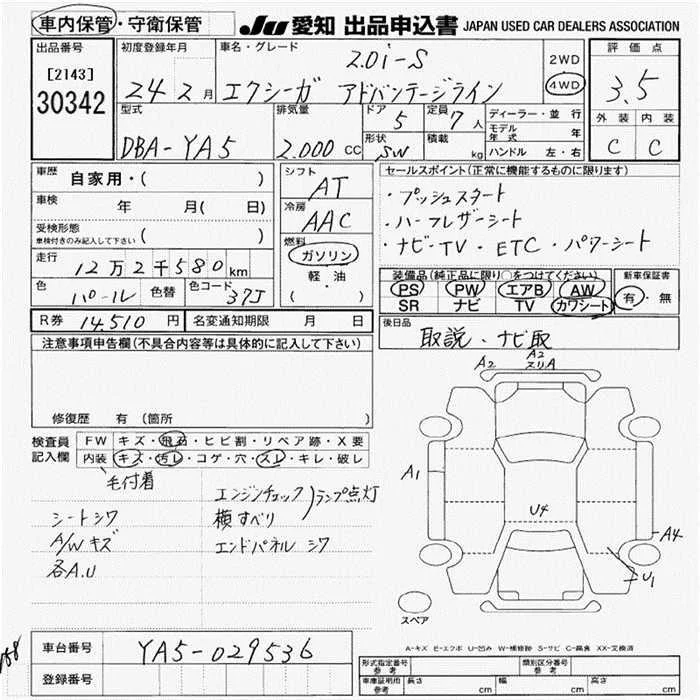 車内保管・守衛保管 JU 愛知 出品申込書 JAPAN USED CAR DEALERS ASSOCIATION
出品番号 [2143] 30342
初度登録年月 24 2月
車名・グレード 2.0i-S
エクシーガ アドバンテージライン
2WD
4WD
評価点 3.5
外装 内装
C C
型式 DBA-YA5
排気量 2.000 CC
ドア 5
形状 SW
定員 7人
積載 kg
ディーラー・並行
モデル年式 年
ハンドル 左・右
車歴 自家用・( )
車検 年 月( 日)
受検形態 ( )
車検付きのみ記入して下さい
走行 12万2千580km
色 パール 色替 色コード 37J
シフト AT
冷房 AAC
燃料 ガソリン
軽・油
( )
セールスポイント(正常に機能するものに限ります)
・プッシュスタート
・ハーフレザーシート
・ナビ・TV・ETC・パワーシート
装備品(純正品に限り○をつけてください)
PS PW エアB AW
SR ナビ TV カワシート
新車保証書
有・無
R券 14,510円 名変通知期限 月 日
後日品 取説・ナビ取
注意事項申告欄(不具合内容等は具体的に記入して下さい)
修復歴 有(箇所 )
検査員記入欄
FW キズ・飛石・ヒビ割・リペア跡・X要
内装 キズ・汚レ・コゲ・穴・スレ・キレ・破レ
毛付着
シートシワ
A/Wキズ
各A.U
エンジンチェックランプ点灯
横すべり
エンドパネル シワ
A2
A2
スリA
A1
U4
A4
U1
スペア
A-キズ E-エクボ U-凹み W-補修跡 S-サビ C-腐食 XX-交換済
車台番号 YA5-029536
登録番号
形式指定番号 参考
類別区分番号 参考
車庫証明用 参考
長さ cm
幅 cm
高さ cm